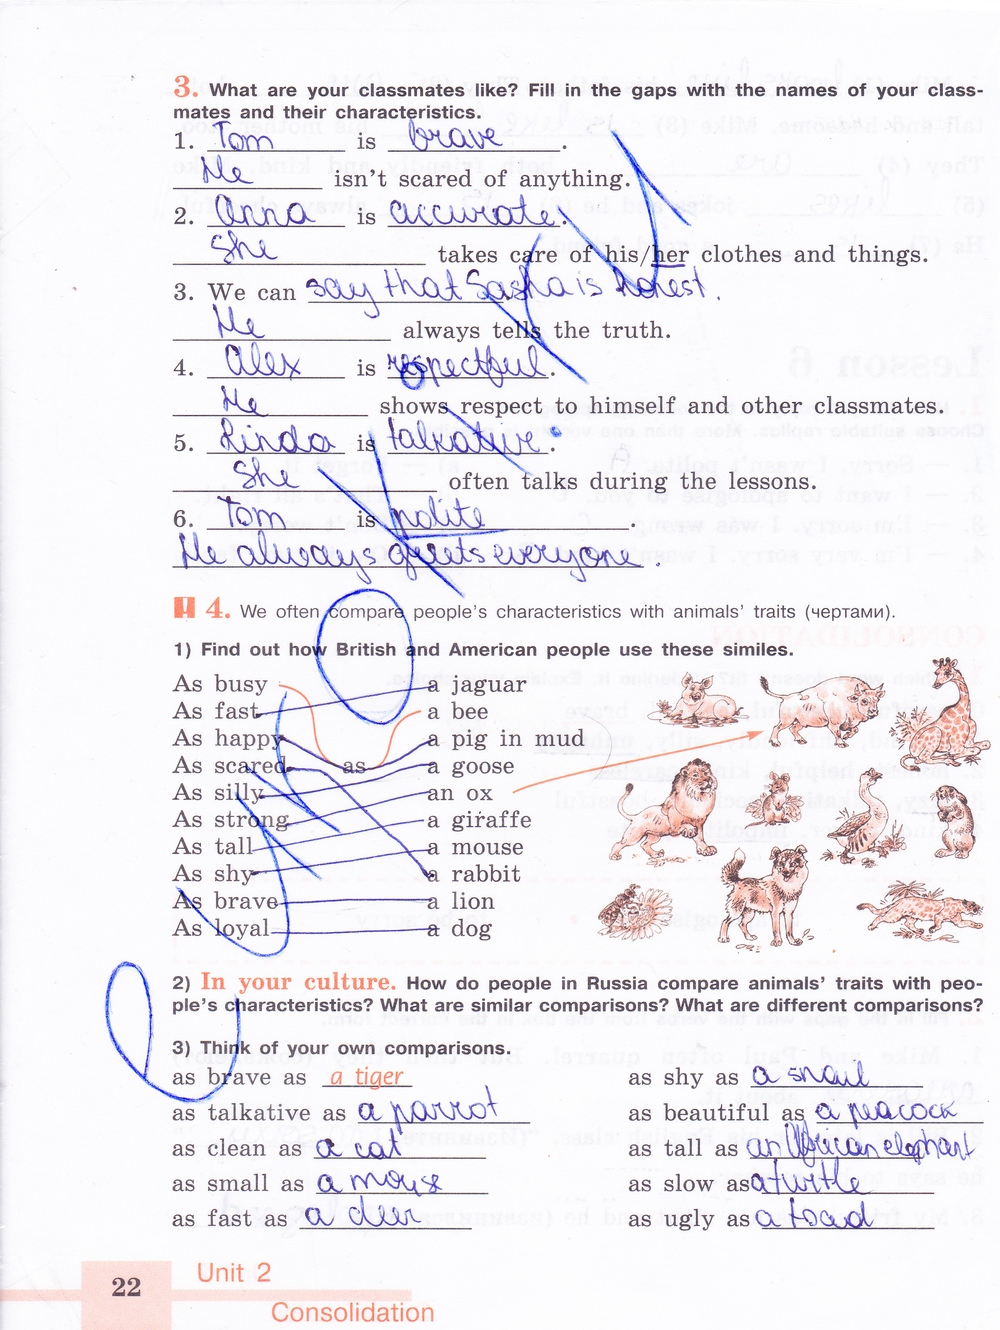 3. What are your classmates like? Fill in the gaps with the names of your class-
mates and their characteristics.
1. Tom is brave.
He isn't scared of anything.
2. Anna is accurate.
She takes care of his/her clothes and things.
3. We can say that Sasha is honest.
He always tells the truth.
4. Alex is respectful.
He shows respect to himself and other classmates.
5. Linda is talkative.
She often talks during the lessons.
6. Tom is polite.
He always greets everyone.
4. We often compare people's characteristics with animals' traits (чертами).
1) Find out how British and American people use these similes.
As busy a jaguar
As fast a bee
As happy a pig in mud
As scared as a goose
As silly an ox
As strong a giraffe
As tall a mouse
As shy a rabbit
As brave a lion
As loyal a dog
2) In your culture. How do people in Russia compare animals' traits with peo-
ple's characteristics? What are similar comparisons? What are different comparisons?
3) Think of your own comparisons.
as brave as a tiger as shy as a snail
as talkative as a parrot as beautiful as a peacock
as clean as a cat as tall as an African elephant
as small as a mouse as slow as a turtle
as fast as a deer as ugly as a toad
22 Unit 2
Consolidation